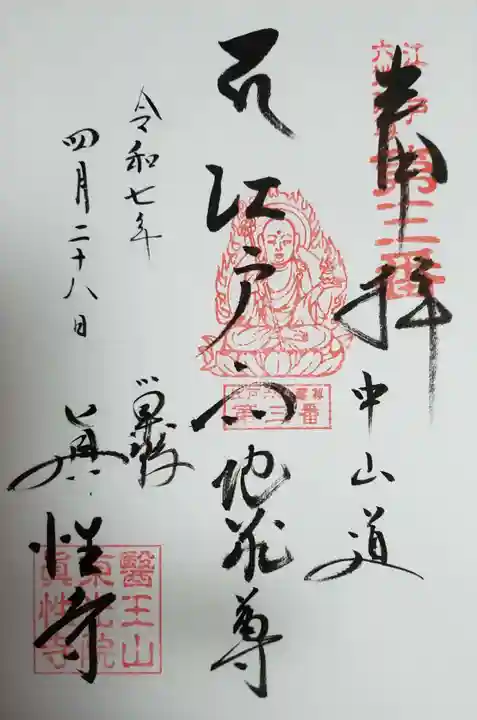 奉拝
中山道
江戸六地蔵尊
第三番
江戸六地蔵尊
第三番
令和七年
四月二十八日
巣鴨
眞性寺
醫王山
東光院
眞性寺